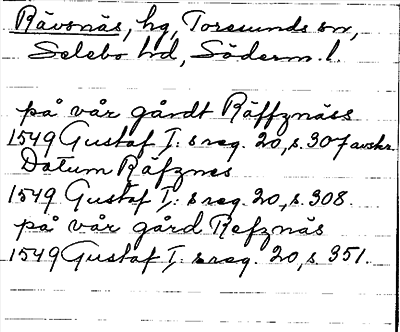 Rävsnäs, hg, Toresunds sn,
Selebo hd, Söderm. l.
på vår gårdt Räffznäss
1549 Gustaf I: s reg. 20, s. 307 avskr.
Datum Räfznes
1549 Gustaf I: s reg. 20, s. 308.
på vår gård Refznäs
1549 Gustaf I: s reg. 20, s. 351.